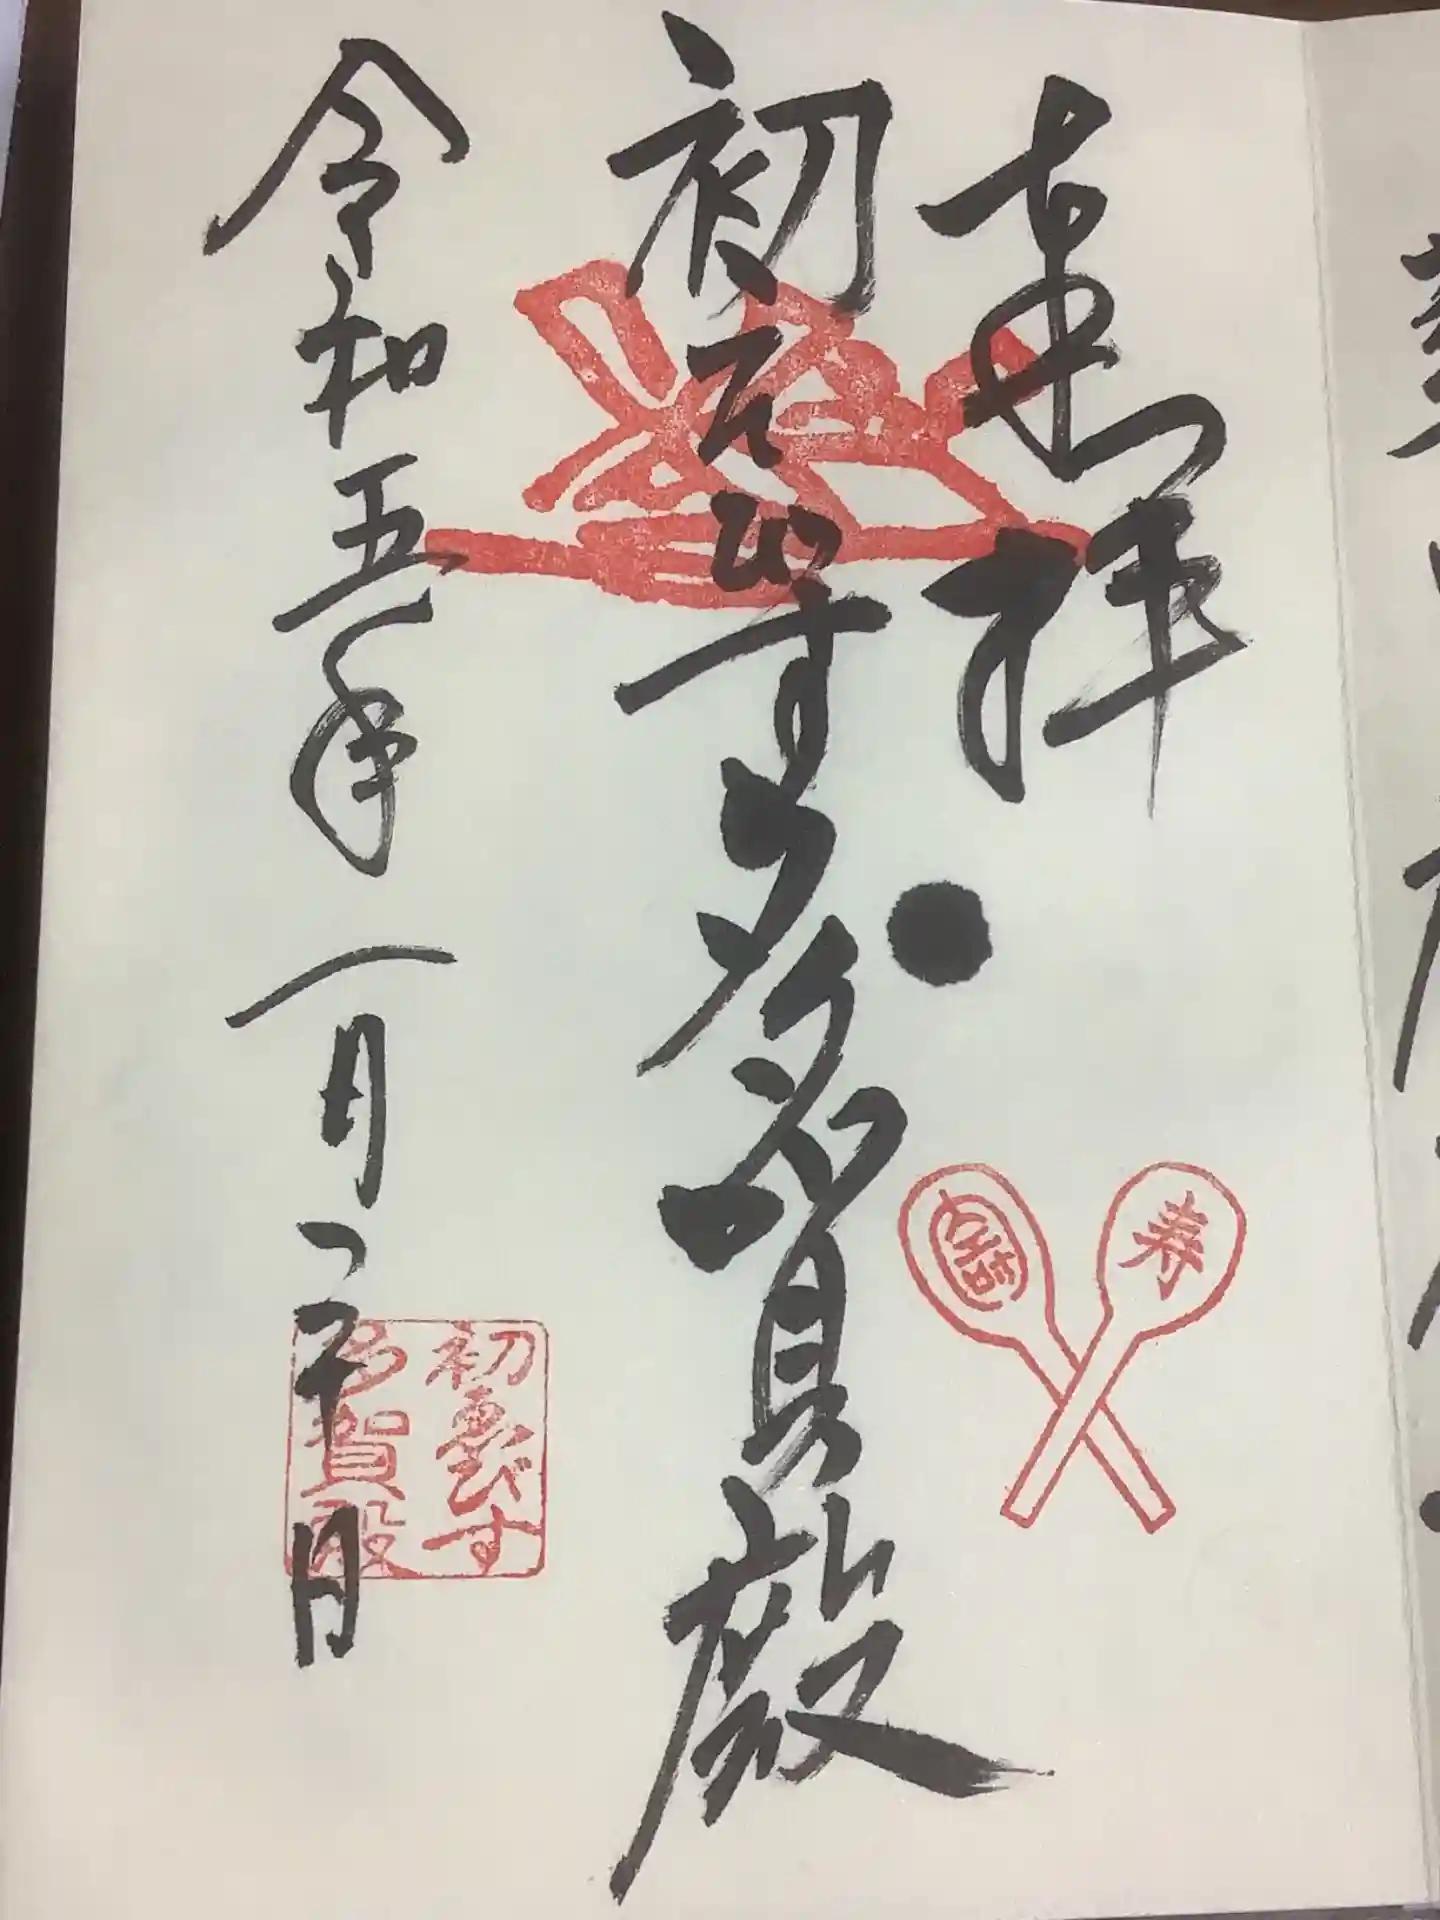 奉拝
初えひす多賀殿
令和五年一月二十日
寿
初ゑびす
多賀殿